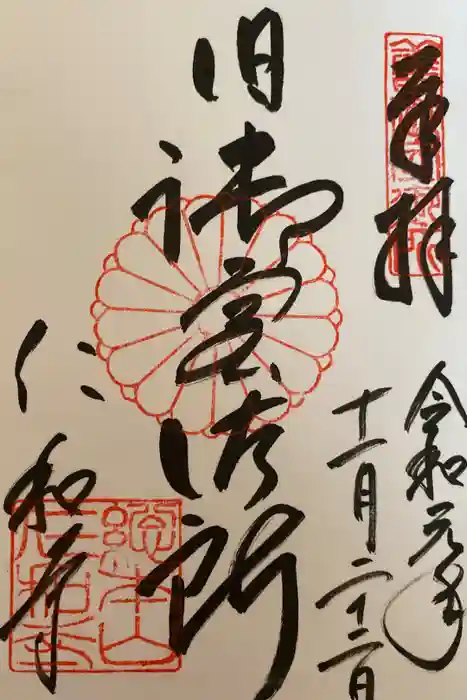 奉拝
令和元年
十一月二十二日
旧御室御所
仁和寺
総本山
仁和寺